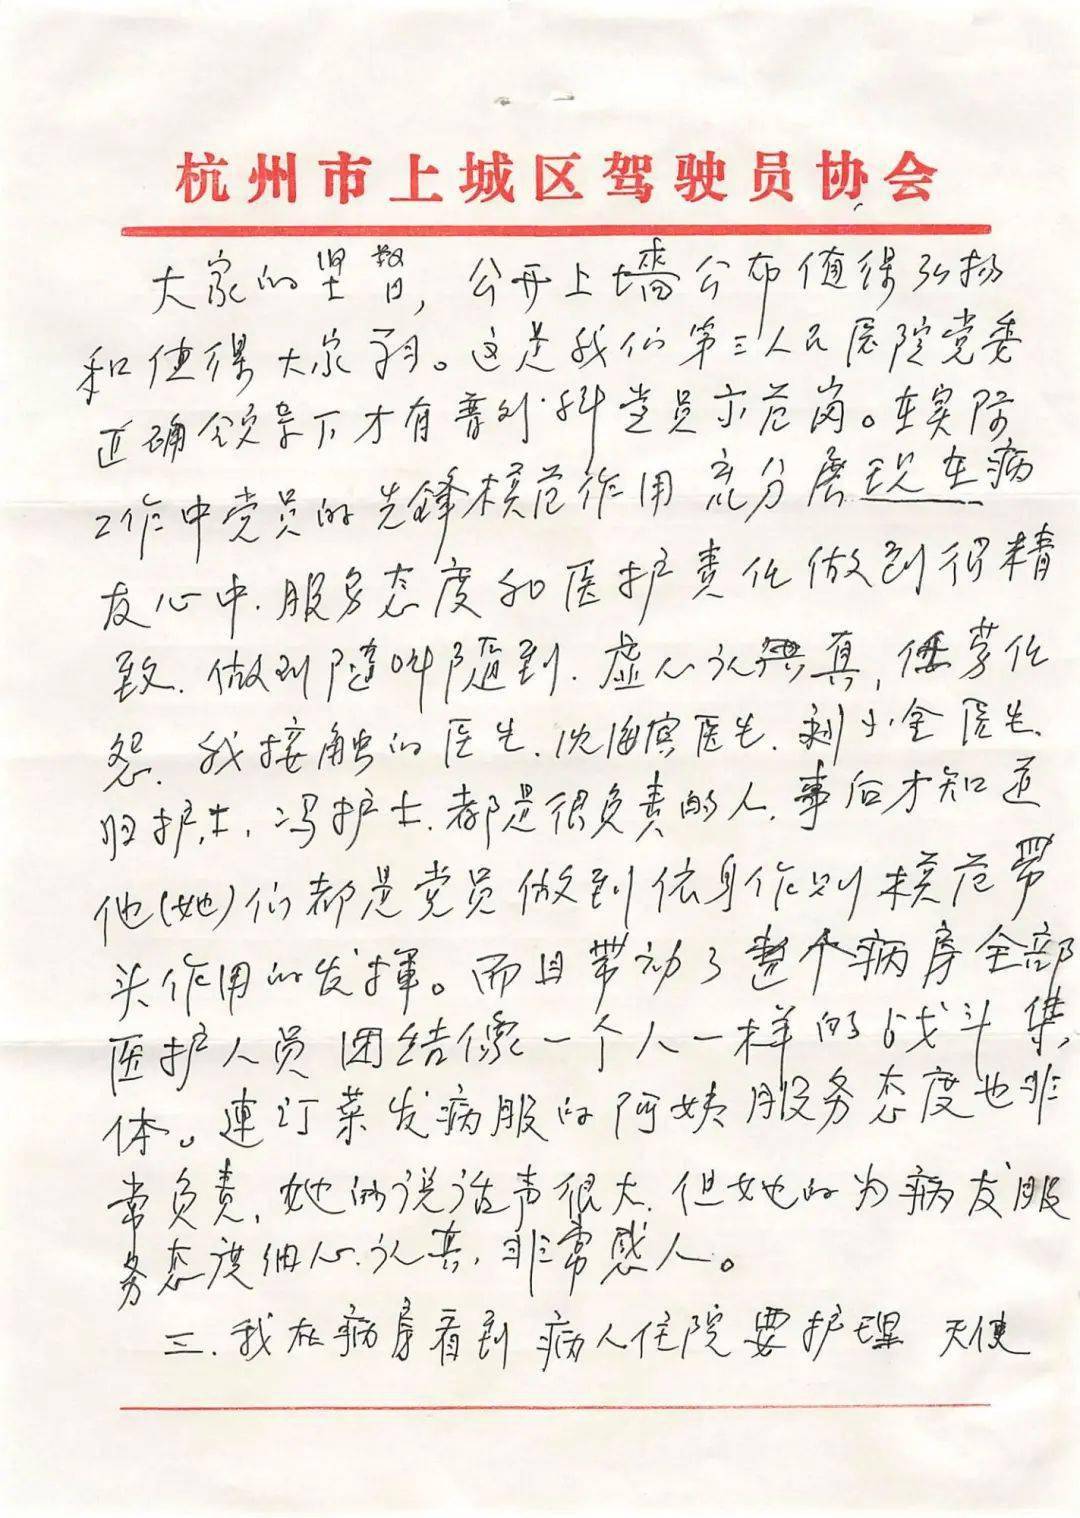 杭州市上城区驾驶员协会
大家的坚督，公开上墙公布值得弘扬
和值得大家。这是我们第三人民医院党委
正确领导下才有普外科党员示范岗。在实际
工作中党员的先锋模范作用充分展现在病
友心中.服务态度和医护责任做到得精
致.做到随叫随到.虚心认真,任劳任
怨.我接触的医生.沈海宾医生.刘小全医生.
护士,冯护士.都是很负责的人.事后才知道
他(她)们都是党员做到依身作则模范带
头作用的发挥。而且带动了整个病房全部
医护人员团结像一个人一样的战斗集
体。連订菜发病服的阿姨服务态度也非
常负责,她的说话声很大.但她的为病友服
务态度细心.认真,非常感人。
三.我在病房看到病人住院要护理 天使